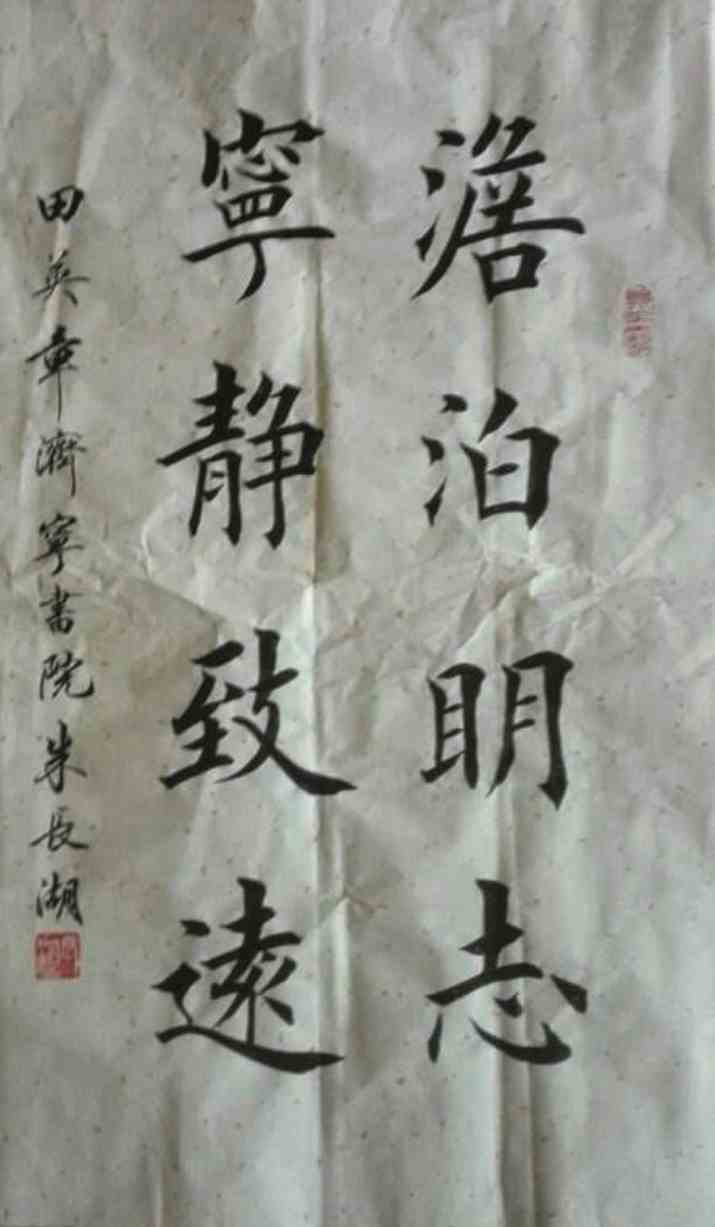 澹泊明志
寧靜致遠
田英章濟寧書院朱長湖